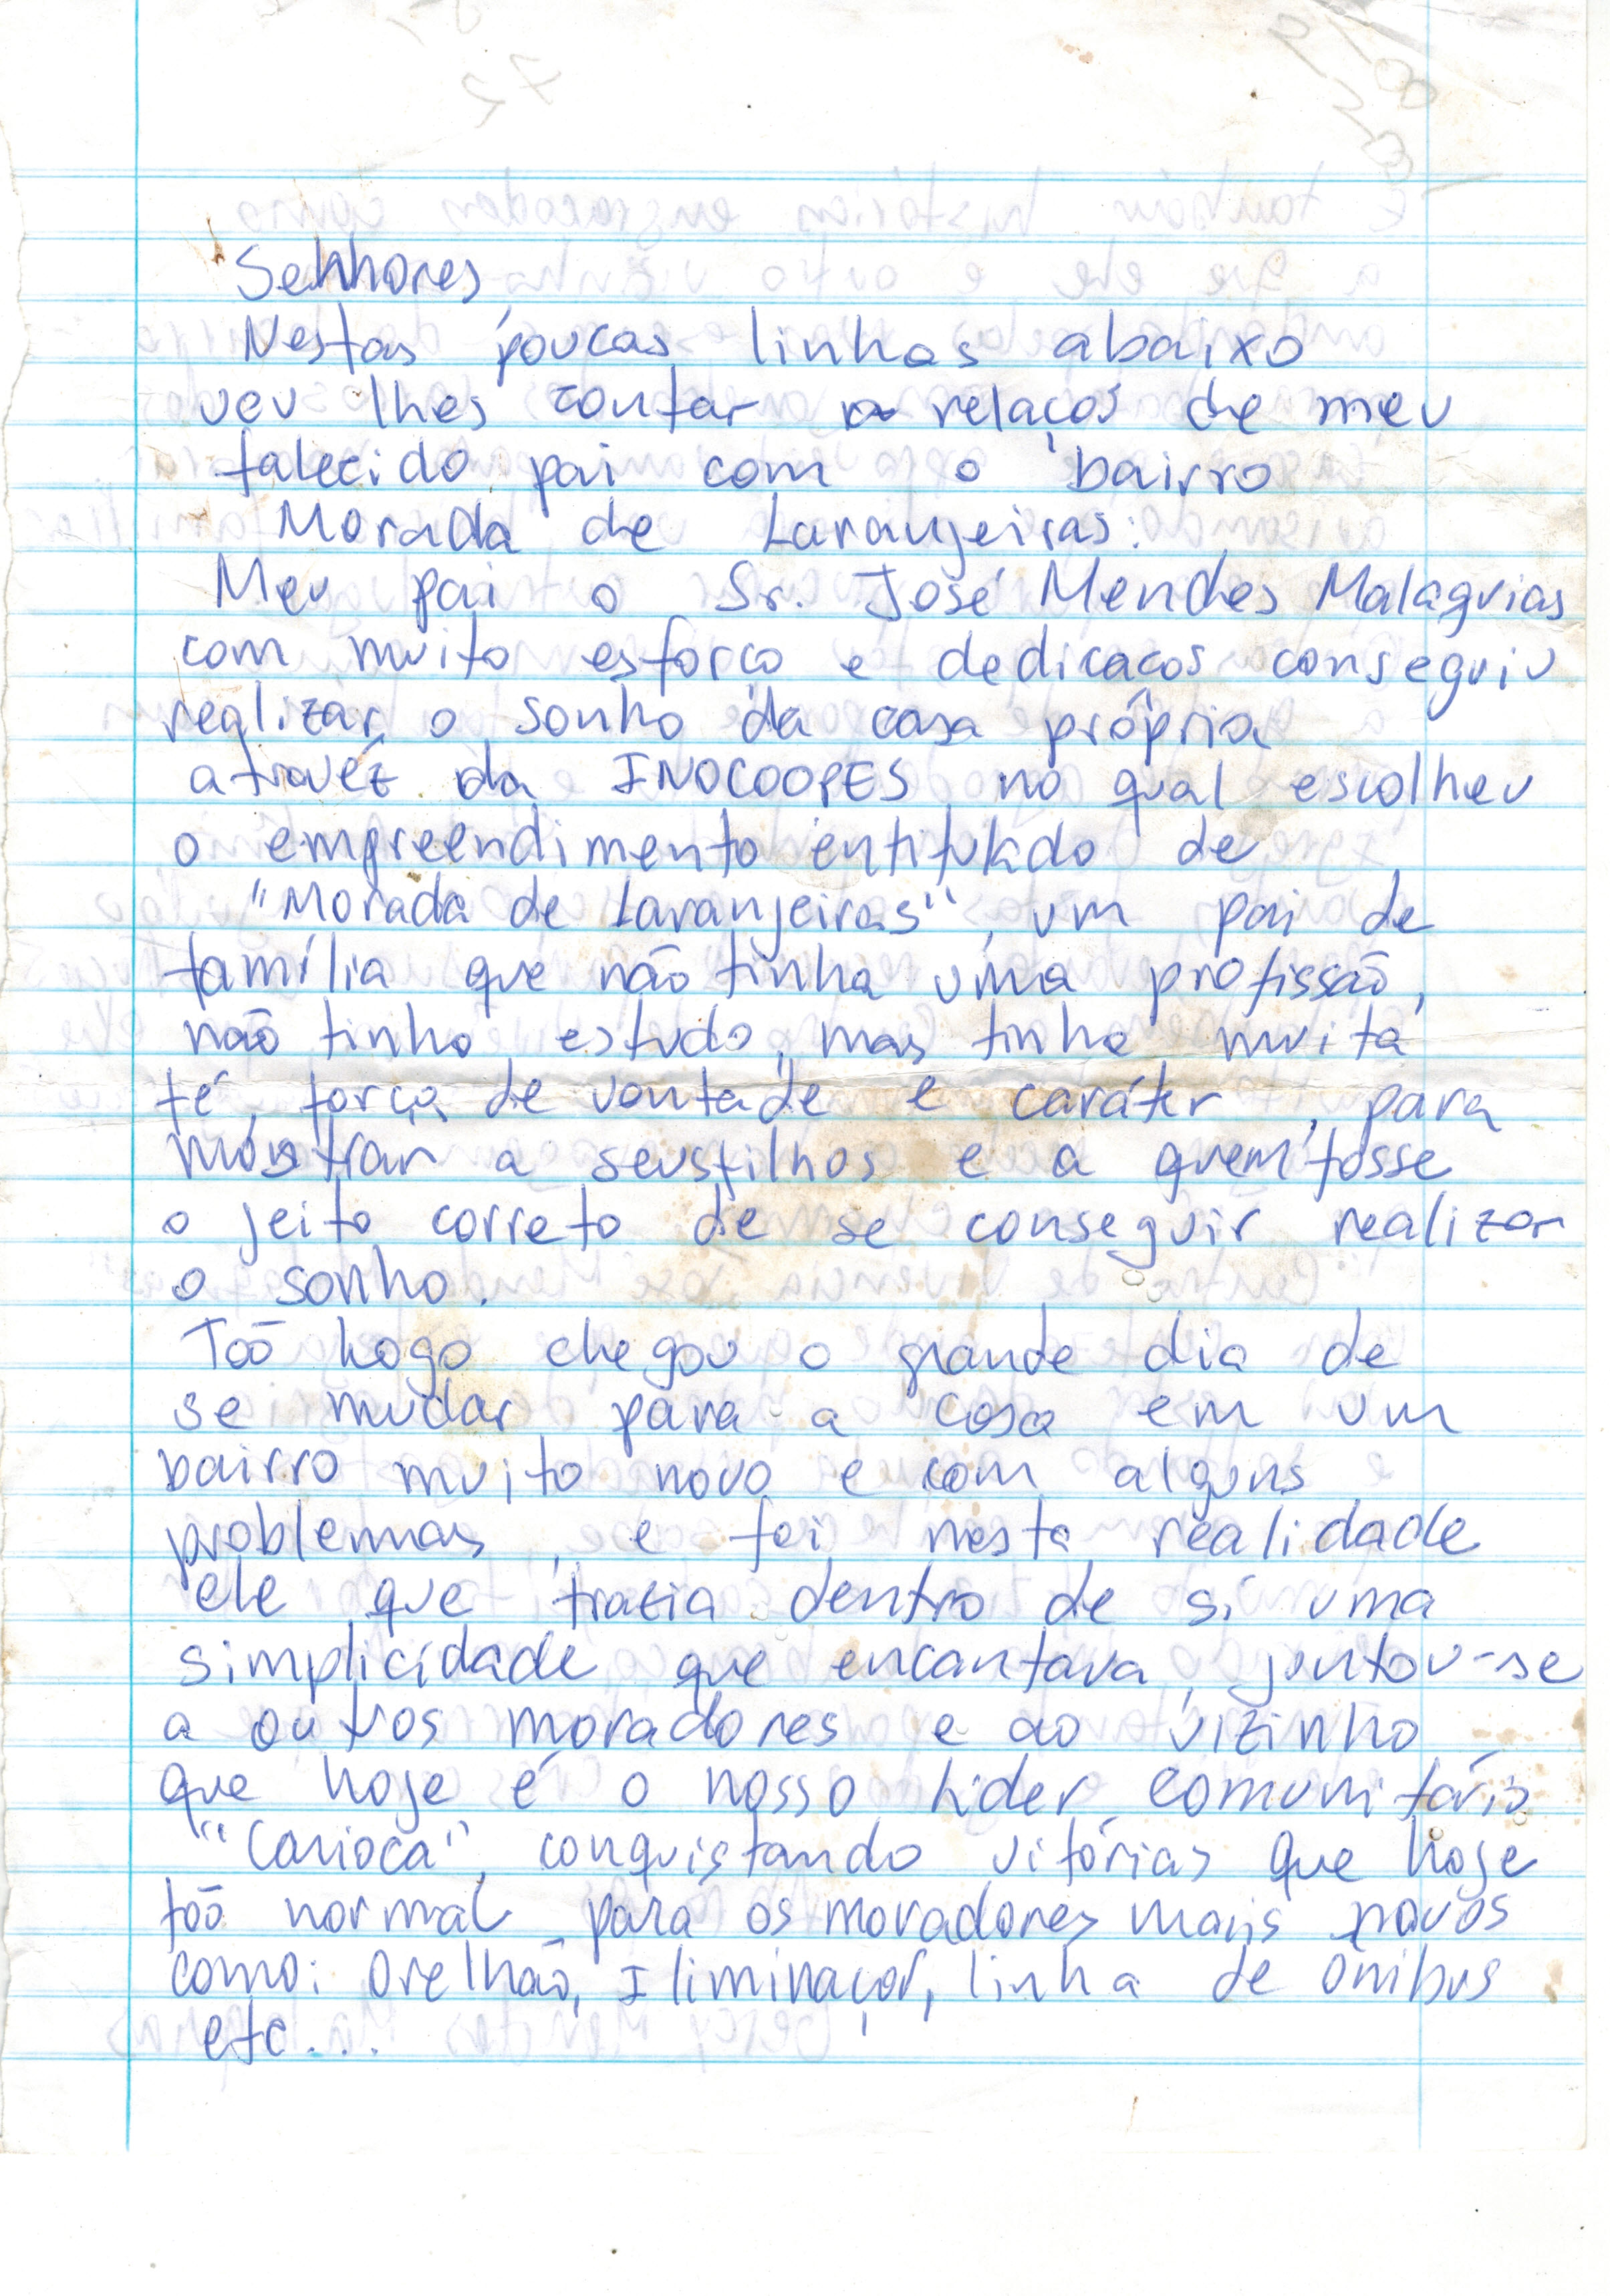 Senhores,
Nestas poucas linhas abaixo
vou lhes contar a relação de meu
falecido pai com o bairro
Morada de Laranjeiras:
Meu pai o Sr. José Mendes Malaquias
com muito esforço e dedicação conseguiu
realizar o sonho da casa própria
atravéz da INOCOOPES no qual escolheu
o empreendimento entitulado de
"Morada de Laranjeiras", um pai de
família que não tinha uma profissão,
não tinha estudo, mas tinha muita
fé, força de vontade e caráter, para
mostrar a seus filhos e a quem fosse
o jeito correto de se conseguir realizar
o sonho.
Tão logo chegou o grande dia de
se mudar para a casa em um
bairro muito novo e com alguns
problemas, e foi nesta realidade
ele que trazia dentro de si uma
simplicidade que encantava, juntou-se
a outros moradores e ao vizinho
que hoje é o nosso líder comunitário
"Carioca", conquistando vitórias que hoje
tão normal para os moradores mais novos
como: Orelhão, Iliminação, linha de ônibus
etc...